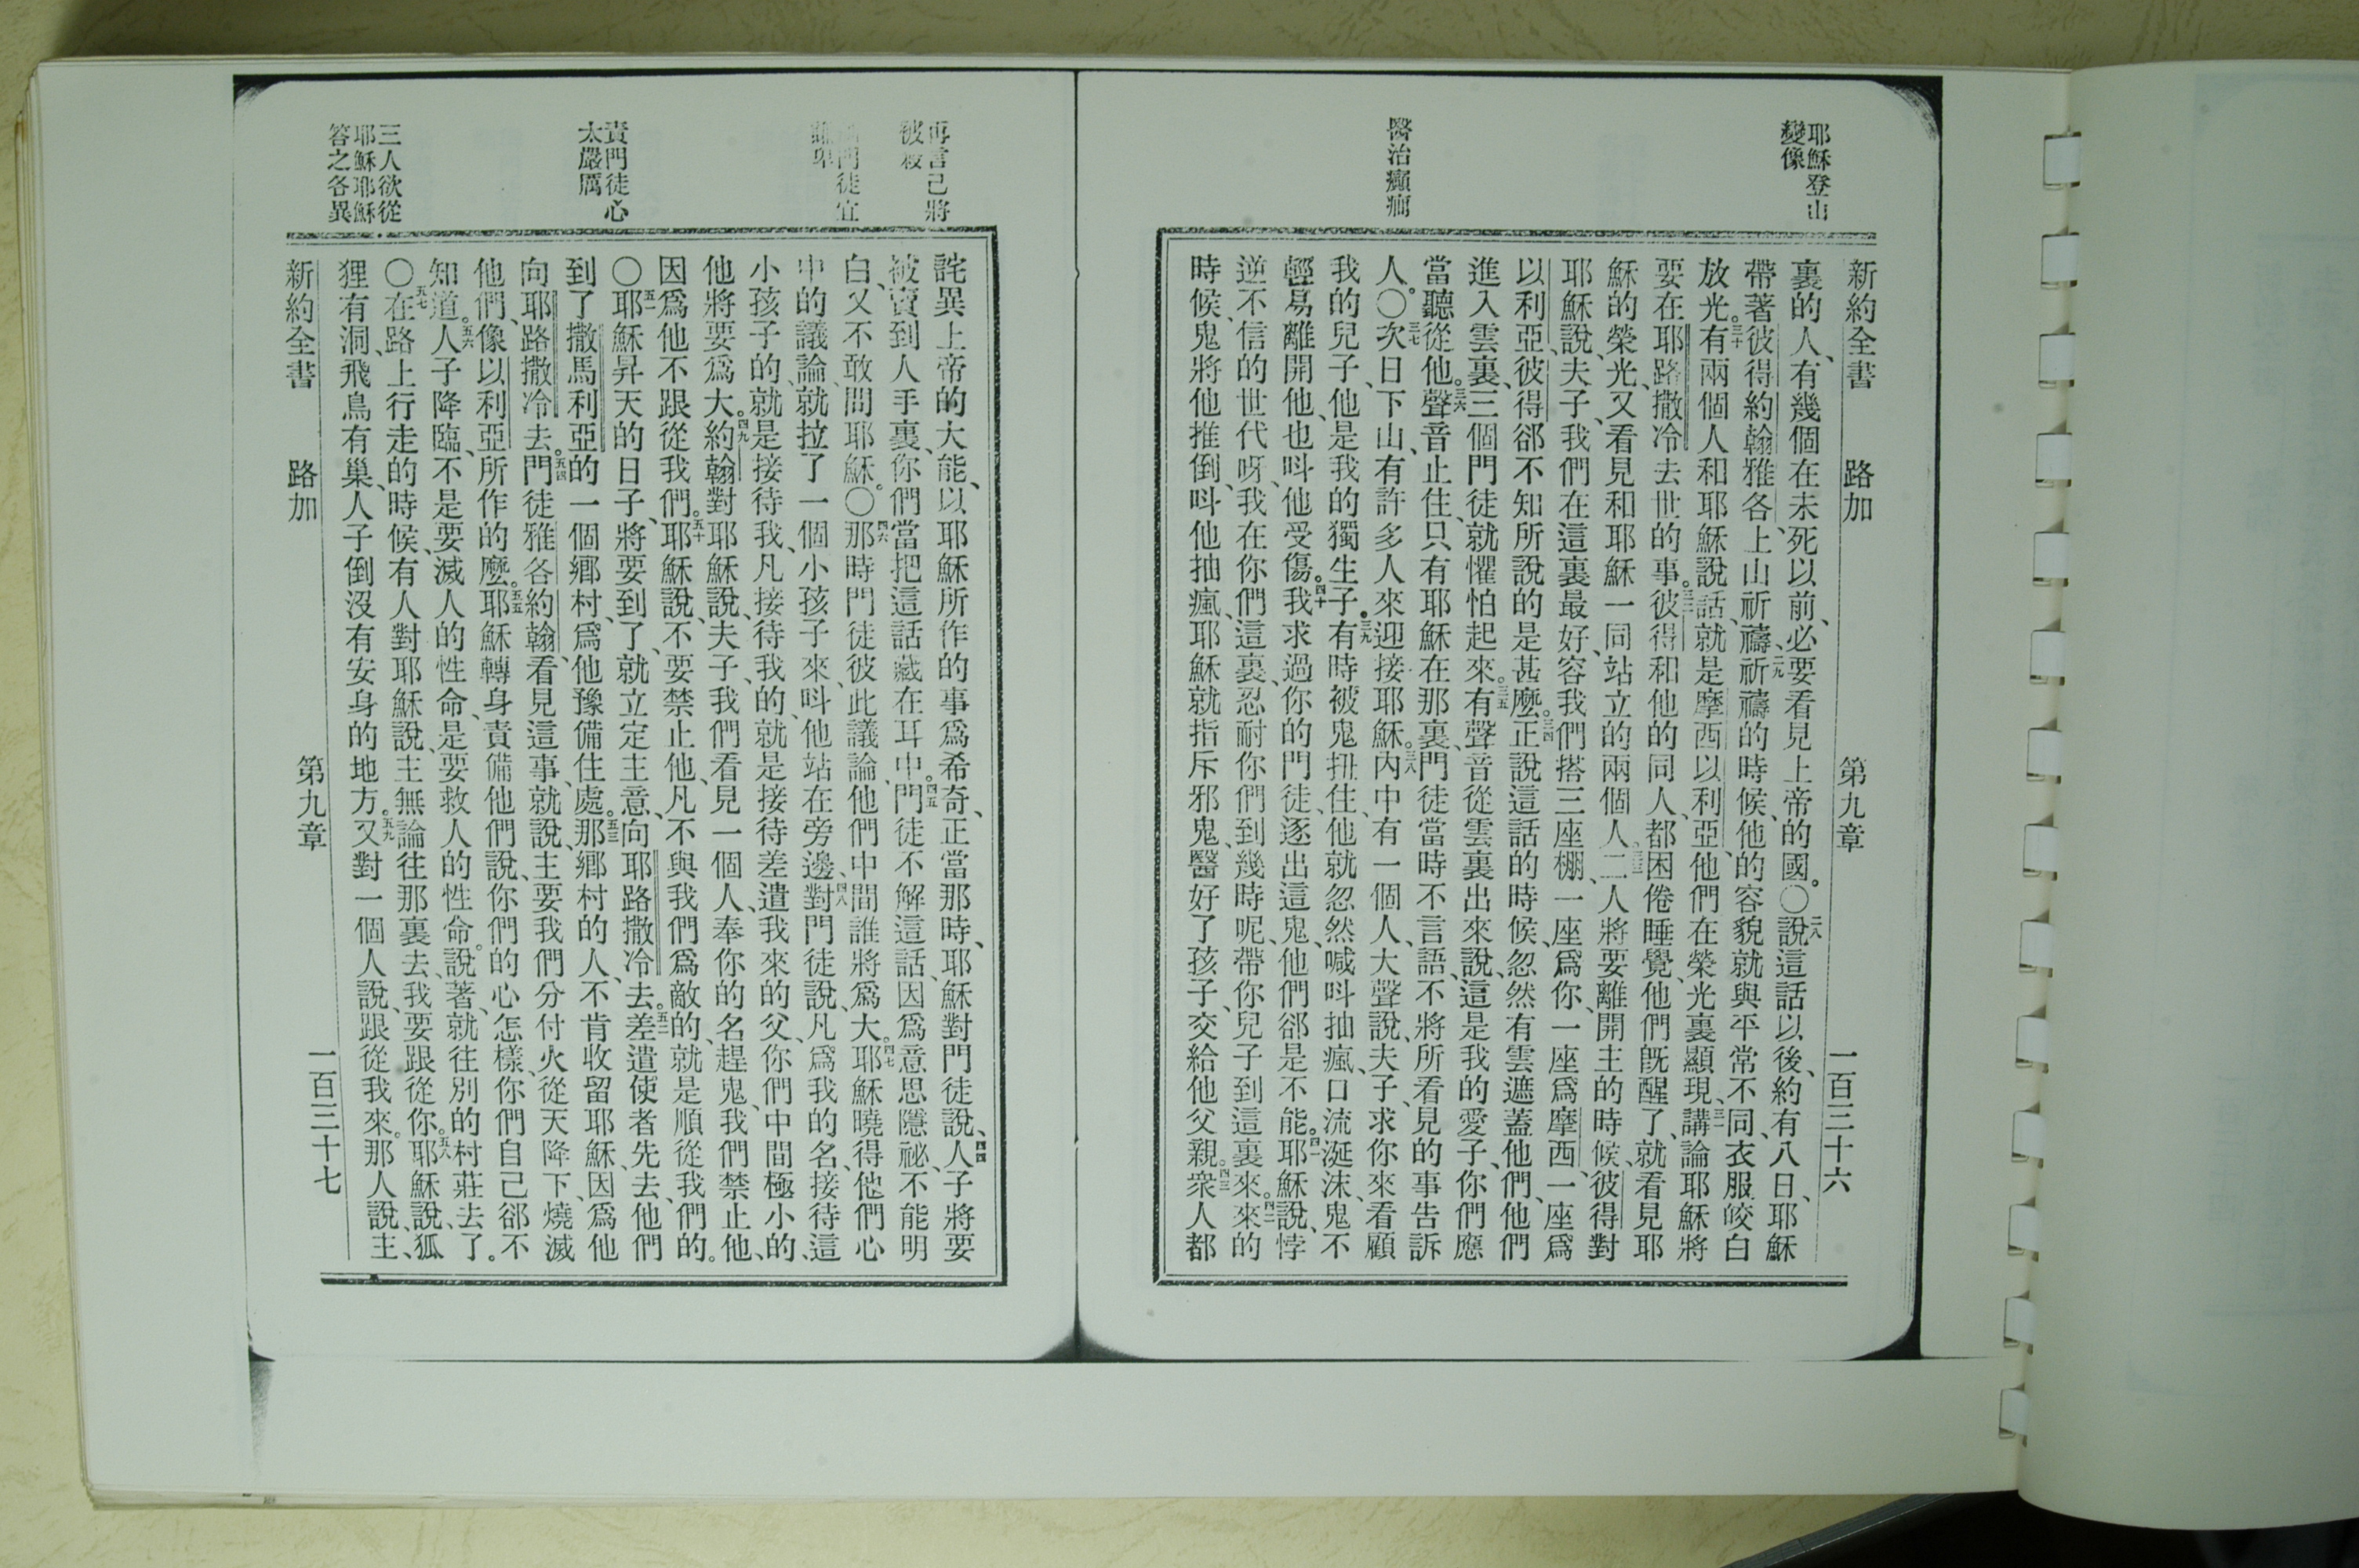 耶穌登山
變像
醫治癲癎
新約全書 路加 第九章 二百三十六
裏的人、有幾個在未死以前、必要看見上帝的國。○二八說這話以後、約有八日、耶穌
帶著彼得約翰雅各、上山祈禱、二九祈禱的時候、他的容貌就與平常不同、衣服皎白
放光。三十有兩個人和耶穌說話、就是摩西以利亞、他們在榮光裏顯現、三一講論耶穌將
要在耶路撒冷去世的事。三二彼得和他的同人、都困倦睡覺、他們旣醒了、就看見耶
穌的榮光、又看見和耶穌一同站立的兩個人。三三二人將要離開主的時候、彼得對
耶穌說、夫子、我們在這裏最好、容我們搭三座棚、一座爲你、一座爲摩西、一座爲
以利亞、彼得郤不知所說的是甚麼。三四正說這話的時候、忽然有雲遮蓋他們、他們
進入雲裏、三個門徒就懼怕起來。三五有聲音從雲裏出來說、這是我的愛子、你們應
當聽從他。三六聲音止住、只有耶穌在那裏、門徒當時不言語、不將所看見的事告訴
人。○三七次日下山、有許多人來迎接耶穌。三八內中有一個人、大聲說、夫子、求你來看顧
我的兒子、他是我的獨生子。三九有時被鬼扭住、他就忽然喊叫抽瘋、口流涎沫、鬼不
輕易離開他、也叫他受傷。四十我求過你的門徒、逐出這鬼、他們郤是不能。四一耶穌說、悖
逆不信的世代呀、我在你們這裏、忍耐你們到幾時呢、帶你兒子到這裏來。四二來的
時候、鬼將他推倒、叫他抽瘋、耶穌就指斥邪鬼、醫好了孩子、交給他父親。四三衆人都
再言己將
被殺
門徒宜
謙卑
責門徒心
太嚴厲
三人欲從
耶穌耶穌
答之各異
詫異上帝的大能、以耶穌所作的事爲希奇、正當那時、耶穌對門徒說、四四人子將要
被賣到人手裏、你們當把這話藏在耳中。四五門徒不解這話、因爲意思隱祕、不能明
白、又不敢問耶穌。○四六那時門徒彼此議論、他們中間誰將爲大。四七耶穌曉得他們心
中的議論、就拉了一個小孩子來、叫他站在旁邊、四八對門徒說、凡爲我的名、接待這
小孩子的、就是接待我、凡接待我的、就是接待差遣我來的父、你們中間極小的、
他將要爲大。四九約翰對耶穌說、夫子、我們看見一個人、奉你的名趕鬼、我們禁止他、
因爲他不跟從我們。五十耶穌說、不要禁止他、凡不與我們爲敵的、就是順從我們的。
○五一耶穌昇天的日子、將要到了、就立定主意、向耶路撒冷去。五二差遣使者先去、他們
到了撒馬利亞的一個鄕村、爲他豫備住處。五三那鄕村的人、不肯收留耶穌、因爲他
向耶路撒冷去。五四門徒雅各約翰、看見這事、就說、主要我們分付火從天降下、燒滅
他們、像以利亞所作的麼。五五耶穌轉身責備他們說、你們的心怎樣、你們自己郤不
知道。五六人子降臨、不是要滅人的性命、是要救人的性命。說著、就往別的村莊去了。
○五七在路上行走的時候、有人對耶穌說、主無論往那裏去、我要跟從你。五八耶穌說、狐
狸有洞、飛鳥有巢、人子倒沒有安身的地方。五九又對一個人說、跟從我來。那人說、主、
新約全書 路加 第九章 二百三十七